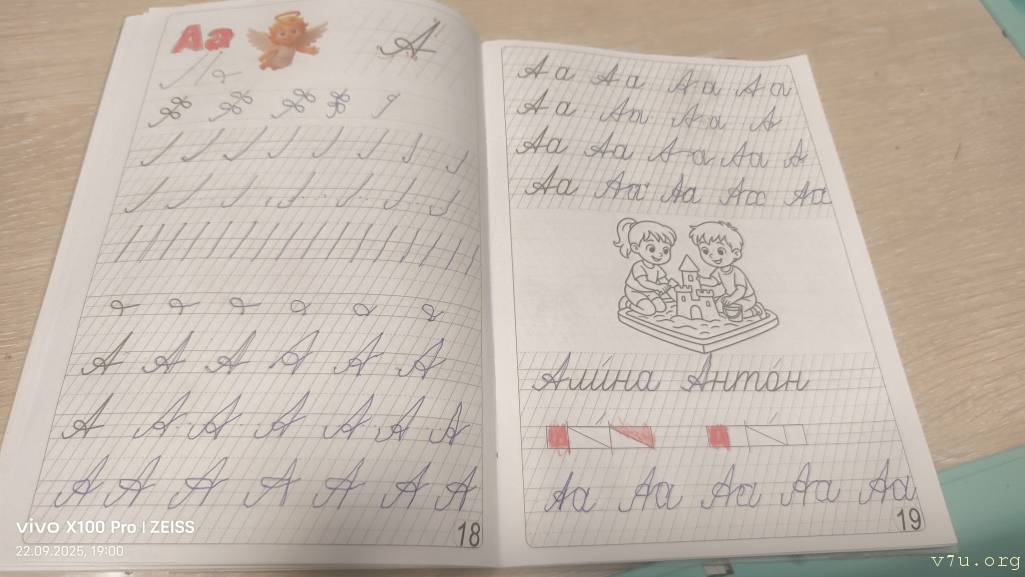 Аа
А
А А А А А А
А А А А А А А
А А А А А А А
18
Аа Аа Аа Аа
Аа Аа Аа А
Аа Аа Аа Аа А
Аа Аа Аа Аа Аа
Али́на Анто́н
Аа Аа Аа Аа Аа
19
vivo X100 Pro | ZEISS
22.09.2025, 19:00
v7u.org